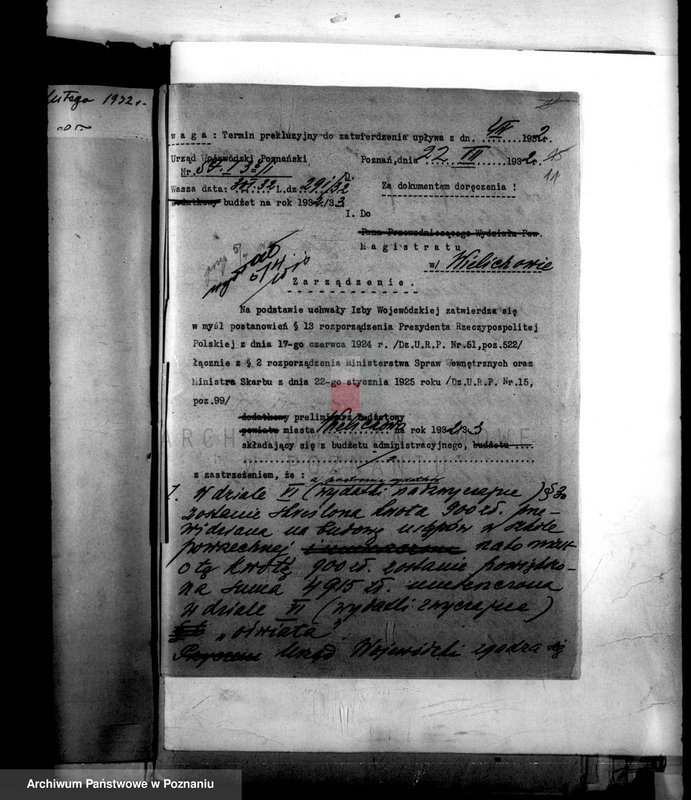 lutego 1932 r.
waga: Termin prekluzyjny do zatwierdzenia upływa z dn. 4/III 1932r.
Urząd Wojewódzki Poznański
Poznań, dnia 22. III 1932.
Nr.
Wasza data: L.dz. 291/32
Za dokumentem doręczenia !
dodatkowy budżet na rok 1932/33
I. Do
Pana Przewodniczącego Wydziału Pow.
Magistratu
w/ Wielichowie
Zarządzenie.
Na podstawie uchwały Izby Wojewódzkiej zatwierdza się
w myśl postanowień § 13 rozporządzenia Prezydenta Rzeczypospolitej
Polskiej z dnia 17-go czerwca 1924 r. /Dz.U.R.P. Nr.51,poz.522/
łącznie z § 2 rozporządzenia Ministerstwa Spraw Wewnętrznych oraz
Ministra Skarbu z dnia 22-go stycznia 1925 roku /Dz.U.R.P. Nr.15,
poz.99/
dodatkowy preliminarz budżetowy
powiatu miasta Wielichowa na rok 1932/33
składający się z budżetu administracyjnego, budżetu ...
z zastrzeżeniem, że :
1. W dziale VI (wydatki nadzwyczajne) §
zostanie skreślona kwota 900 zł. prze-
widziana na budowę ustępów w szkole
powszechnej natomiast
o tę kwotę 900 zł. zostanie powiększo-
na suma 4915 zł. umieszczona
w dziale VI (wydatki zwyczajne)
"oświata"
Urząd Wojewódzki zgadza się
Archiwum Państwowe w Poznaniu